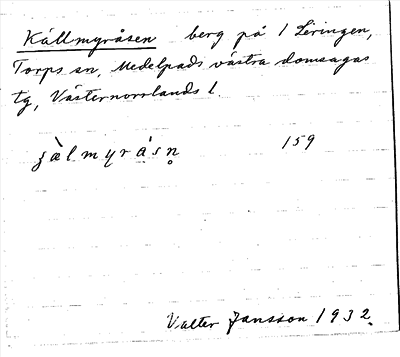 Källmyråsen berg på 1 Leringen,
Torps sn, Medelpads västra domsagas
tg, Västernorrlands l.
jälmyråsn̥ 159
Valter Jansson 1932.